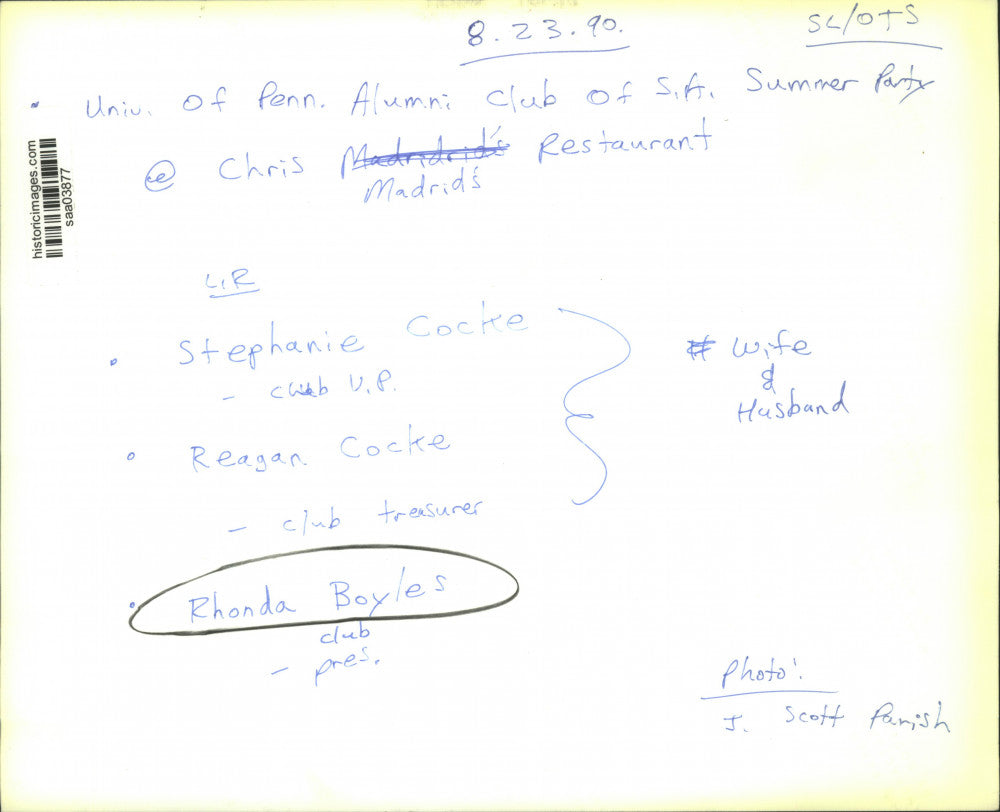 8.23.90.
SL/OTS
Univ. of Penn. Alumni Club of S.A. Summer Party
@ Chris Madridrid's Restaurant
Madrid's
historicimages.com
saa03877
L,R
Stephanie Cocke
- club V.P.
# Wife
&
Husband
Reagan Cocke
- club treasurer
Rhonda Boyles
club
- pres.
Photo:
J. Scott Parish